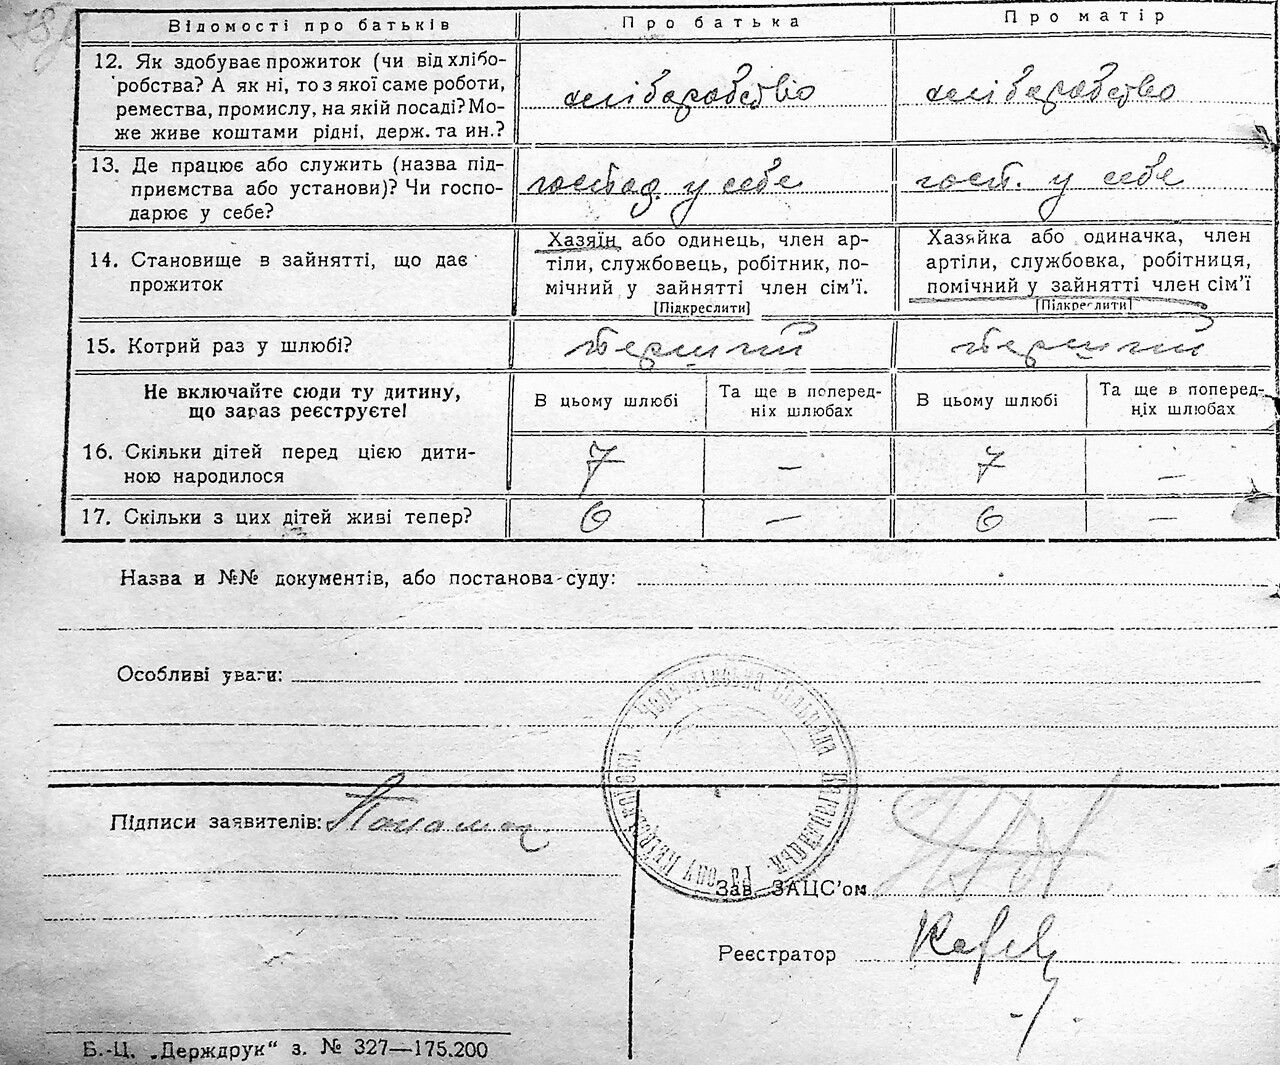 Відомості про батьків Про батька Про матір
12. Як здобуває прожиток (чи від хлібо-
робства? А як ні, то з якої саме роботи,
ремества, промислу, на якій посаді? Мо-
же живе коштами рідні, держ. та ин.?
хліборобство хліборобство
13. Де працює або служить (назва під-
приємства або установи)? Чи госпо-
дарює у себе?
господ. у себе госп. у себе
14. Становище в зайнятті, що дає
прожиток
Хазяїн або одинець, член ар-
тіли, службовець, робітник, по-
мічний у зайнятті член сім'ї.
[Підкреслити]
Хазяйка або одиначка, член
артіли, службовка, робітниця,
помічний у зайнятті член сім'ї
[Підкреслити]
15. Котрий раз у шлюбі? перший перший
Не включайте сюди ту дитину,
що зараз реєструєте!
В цьому шлюбі
Та ще в поперед-
ніх шлюбах
В цьому шлюбі
Та ще в поперед-
ніх шлюбах
16. Скільки дітей перед цією дити-
ною народилося
7 — 7 —
17. Скільки з цих дітей живі тепер? 6 — 6 —
Назва и №№ документів, або постанова суду:
Особливі уваги:
Підписи заявителів:
Зав. ЗАЦС'ом
Реєстратор
Б.-Ц. „Держдрук" з. № 327—175.200